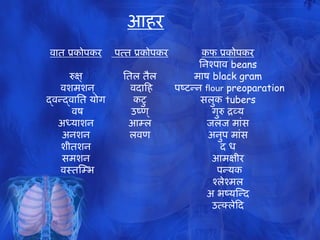 आहर
वात प्रकोपकर पत्त प्रकोपकर कफ प्रकोपकर
निश्पाव beans
रुक्ष् तिल तैल माष black gram
वशमशन वदाहि पष्टन्न flour preoparation
द्वन्द्वाति योग कटु सलुक tubers
वष उष्ण् गुरु द्रव्य
अध्याशन आम्ल जलज मांस
अनशन लवण अनुप मांस
शीतशन द ध
समशन आमक्षीर
वस्तम्भि पन्यक
श्लेश्मल
अ भष्यन्दि
उत्क्लेदि